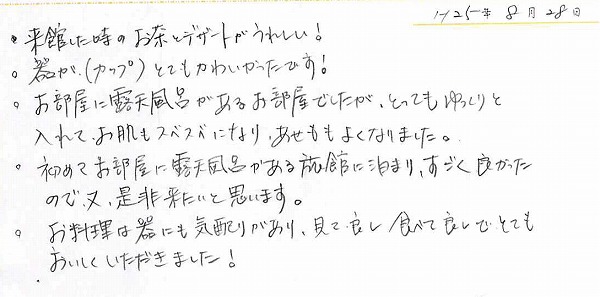 H25年 8月 28日
・来館した時のお茶とデザートがうれしい!
。器が、(カップ)とてもかわいかったです!
。お部屋に露天風呂があるお部屋でしたが、とってもゆっくりと
入れて、お肌もスベスベになり、あせももよくなりました。
・初めてお部屋に露天風呂がある旅館に泊まり、すごく良かった
ので、又、是非来たいと思います。
。お料理は器にも気配りがあり、見て良し/食べて良しでとても
おいしくいただきました!